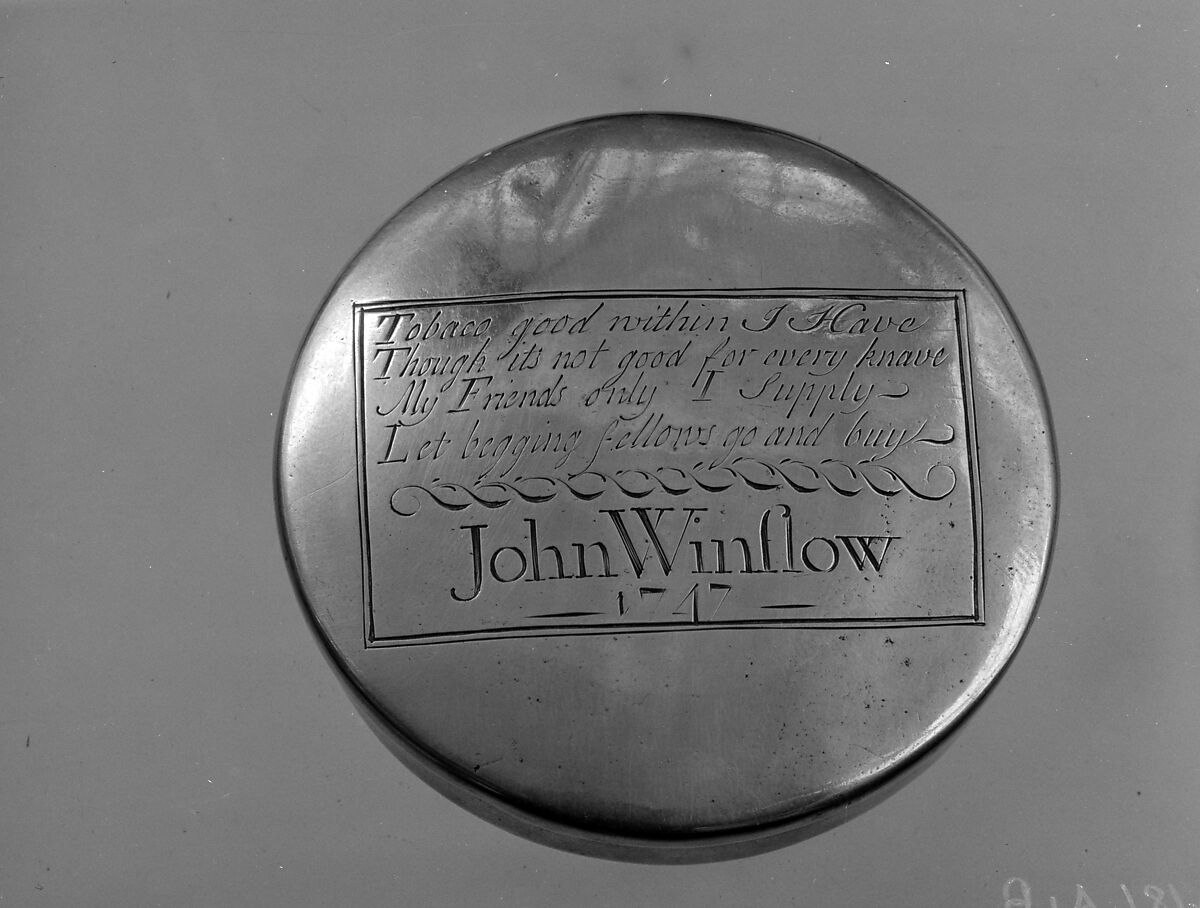 Tobaco good within I Have
Though its not good for every knave
My Friends only I Supply
Let begging fellows go and buy
John Winſlow
1747